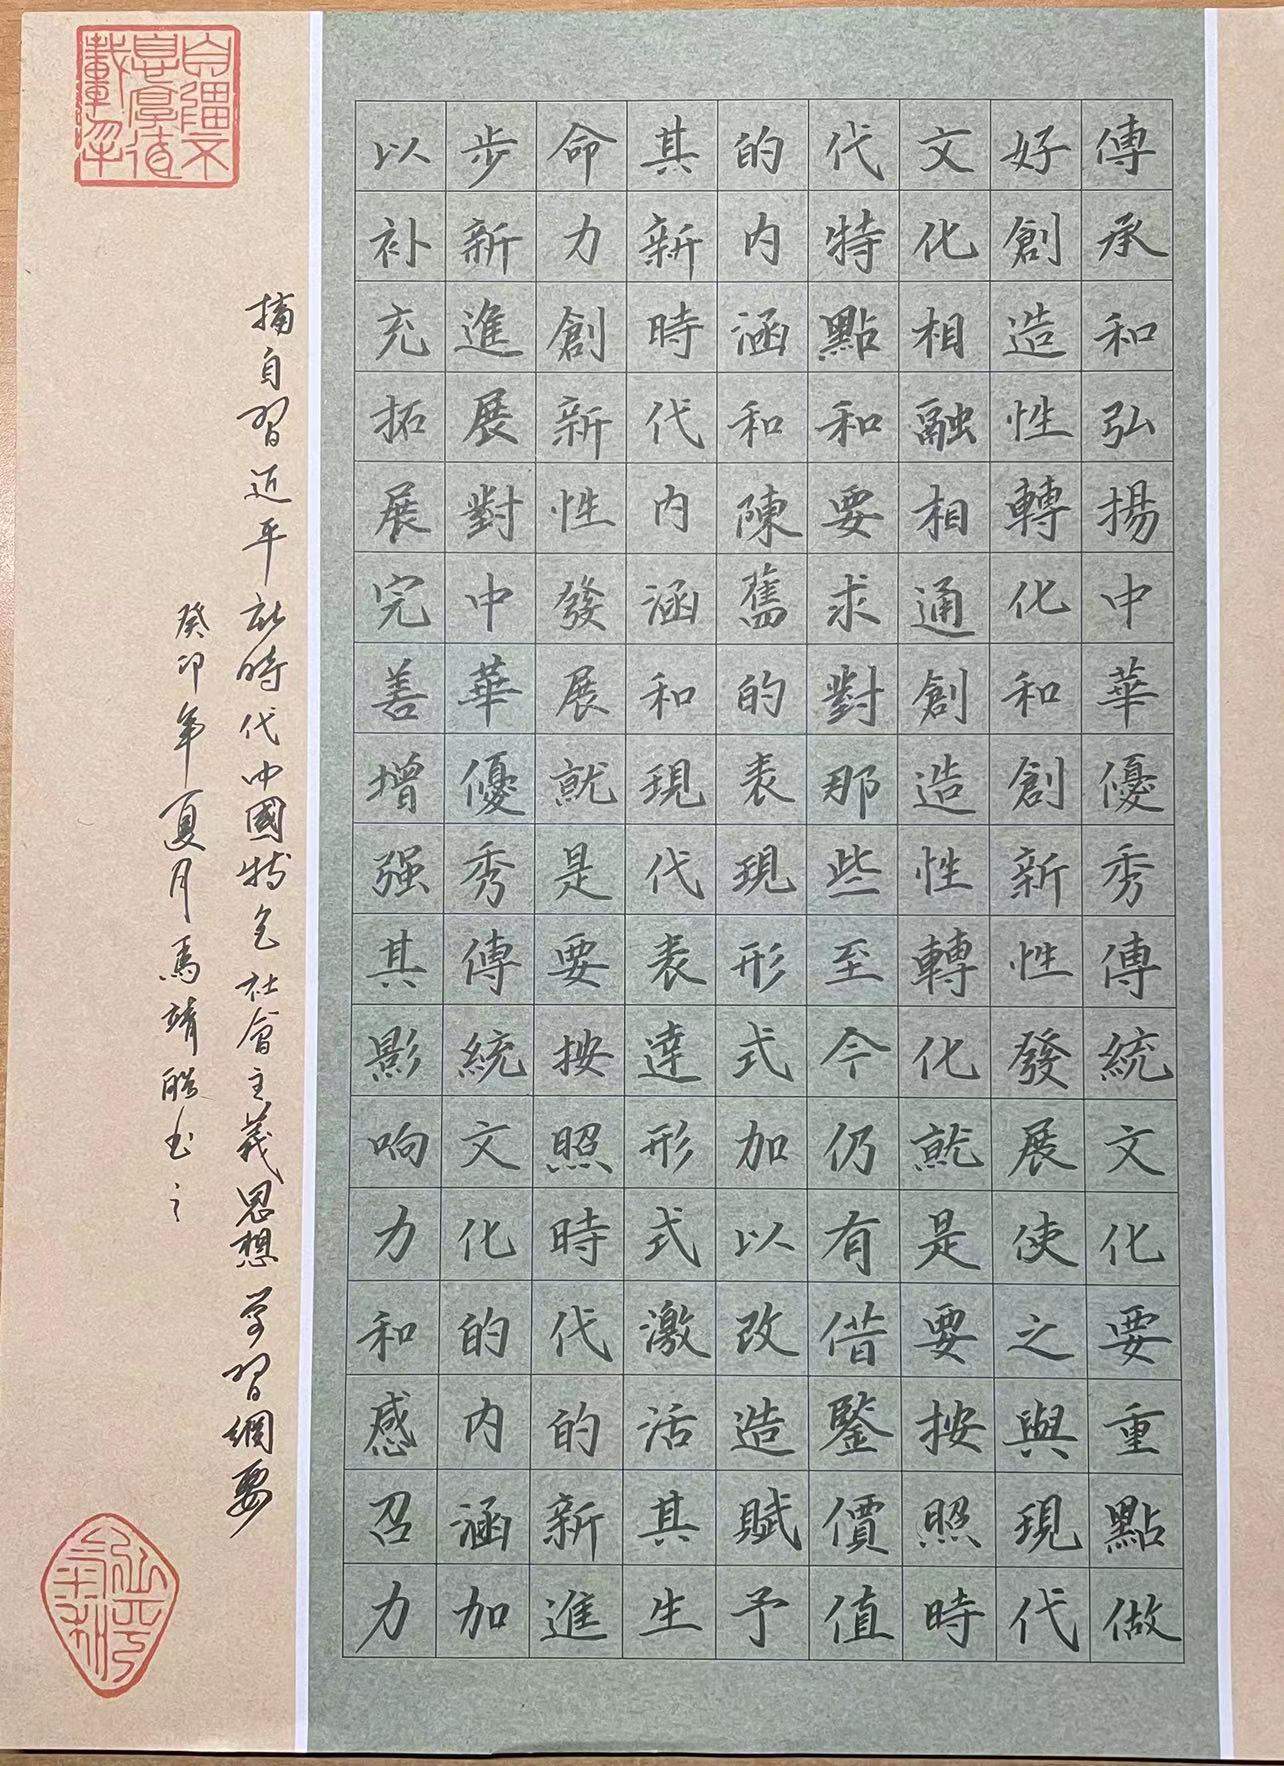 傳承和弘揚中華優秀傳統文化要重點做
好創造性轉化和創新性發展使之與現代
文化相融相通創造性轉化就是要按照時
代特點和要求對那些至今仍有借鑒價值
的内涵和陳舊的表現形式加以改造賦予
其新時代内涵和現代表達形式激活其生
命力創新性發展就是要按照時代的新進
步新進展對中華優秀傳統文化的内涵加
以补充拓展完善增强其影响力和感召力
摘自習近平新時代中國特色社會主義思想學習綱要
癸卯年夏月馬靖皓书之
自彊不息厚德載物